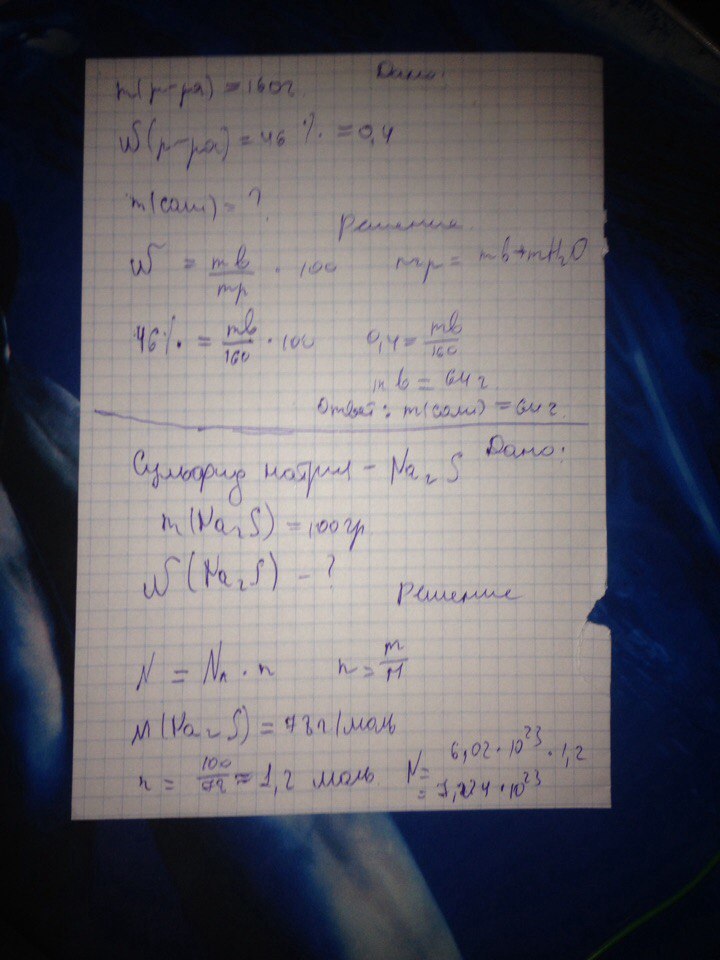 Дано:
m(р-ра) = 160г
W(р-ра) = 46 % = 0,4
m(соли) = ?
Решение
W = mв/mр · 100 mр = mв + mH2O
46% = mв/160 · 100 0,4 = mв/160
mв = 64 г.
Ответ: m(соли) = 64 г.
Дано:
Сульфид натрия - Na2S
m(Na2S) = 100гр
N(Na2S) - ?
Решение
N = NA · n n = m/M
M(Na2S) = 78г/моль
n = 100/78 ≈ 1,2 моль N = 6,02 · 10^23 · 1,2
= 7,224 · 10^23